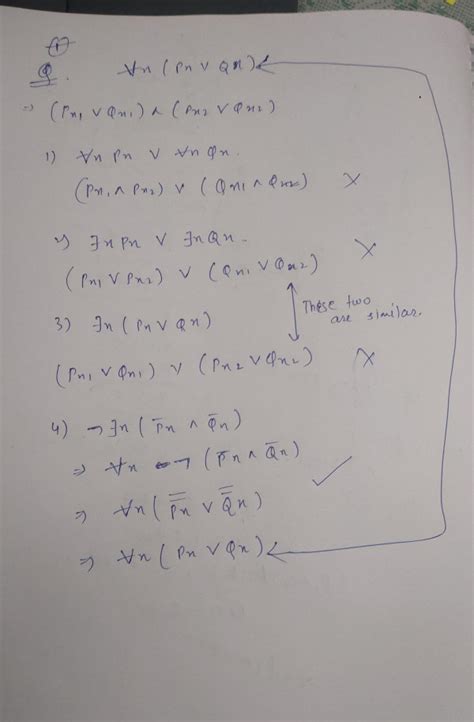 ①
Q. ∀x (Px ∨ Qx)
⇒ (Px₁ ∨ Qx₁) ∧ (Px₂ ∨ Qx₂)
1) ∀x Px ∨ ∀x Qx.
(Px₁ ∧ Px₂) ∨ (Qx₁ ∧ Qx₂) ×
2) ∃x Px ∨ ∃x Qx.
(Px₁ ∨ Px₂) ∨ (Qx₁ ∨ Qx₂) ×
These two
are similar.
3) ∃x (Px ∨ Qx)
(Px₁ ∨ Qx₁) ∨ (Px₂ ∨ Qx₂) ×
4) ¬∃x (P̅x ∧ Q̅x)
⇒ ∀x ¬ (P̅x ∧ Q̅x)
⇒ ∀x (P̿x ∨ Q̿x) ✓
⇒ ∀x (Px ∨ Qx)